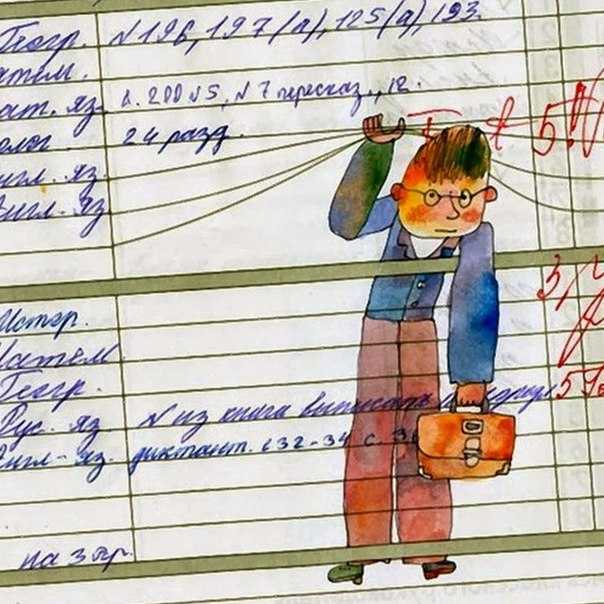 Геогр. №196, 197(а), 125(а), 193.
атем.
ат. яз. с. 200 №5, №7 пересказ., 12.
олог 24 разд. 5
нгл. яз.
Англ. яз
3
Истор.
Матем
Геогр. 5
Рус. яз № из книга выписать
нгл-яз. диктант. с 32-34 с. 3
на 3